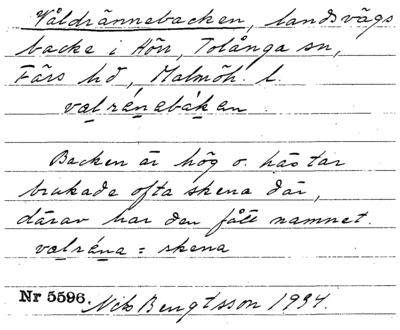 Våldrännebacken, landsvägs
backe i Hörr, Tolånga sn,
Färs hd, Malmöh. l.
vælrænabákan
Backen är hög o. hästar
brukade ofta skena där,
därav har den fått namnet.
vælræna = skena
Nr 5596. Nils Bengtsson 1934.